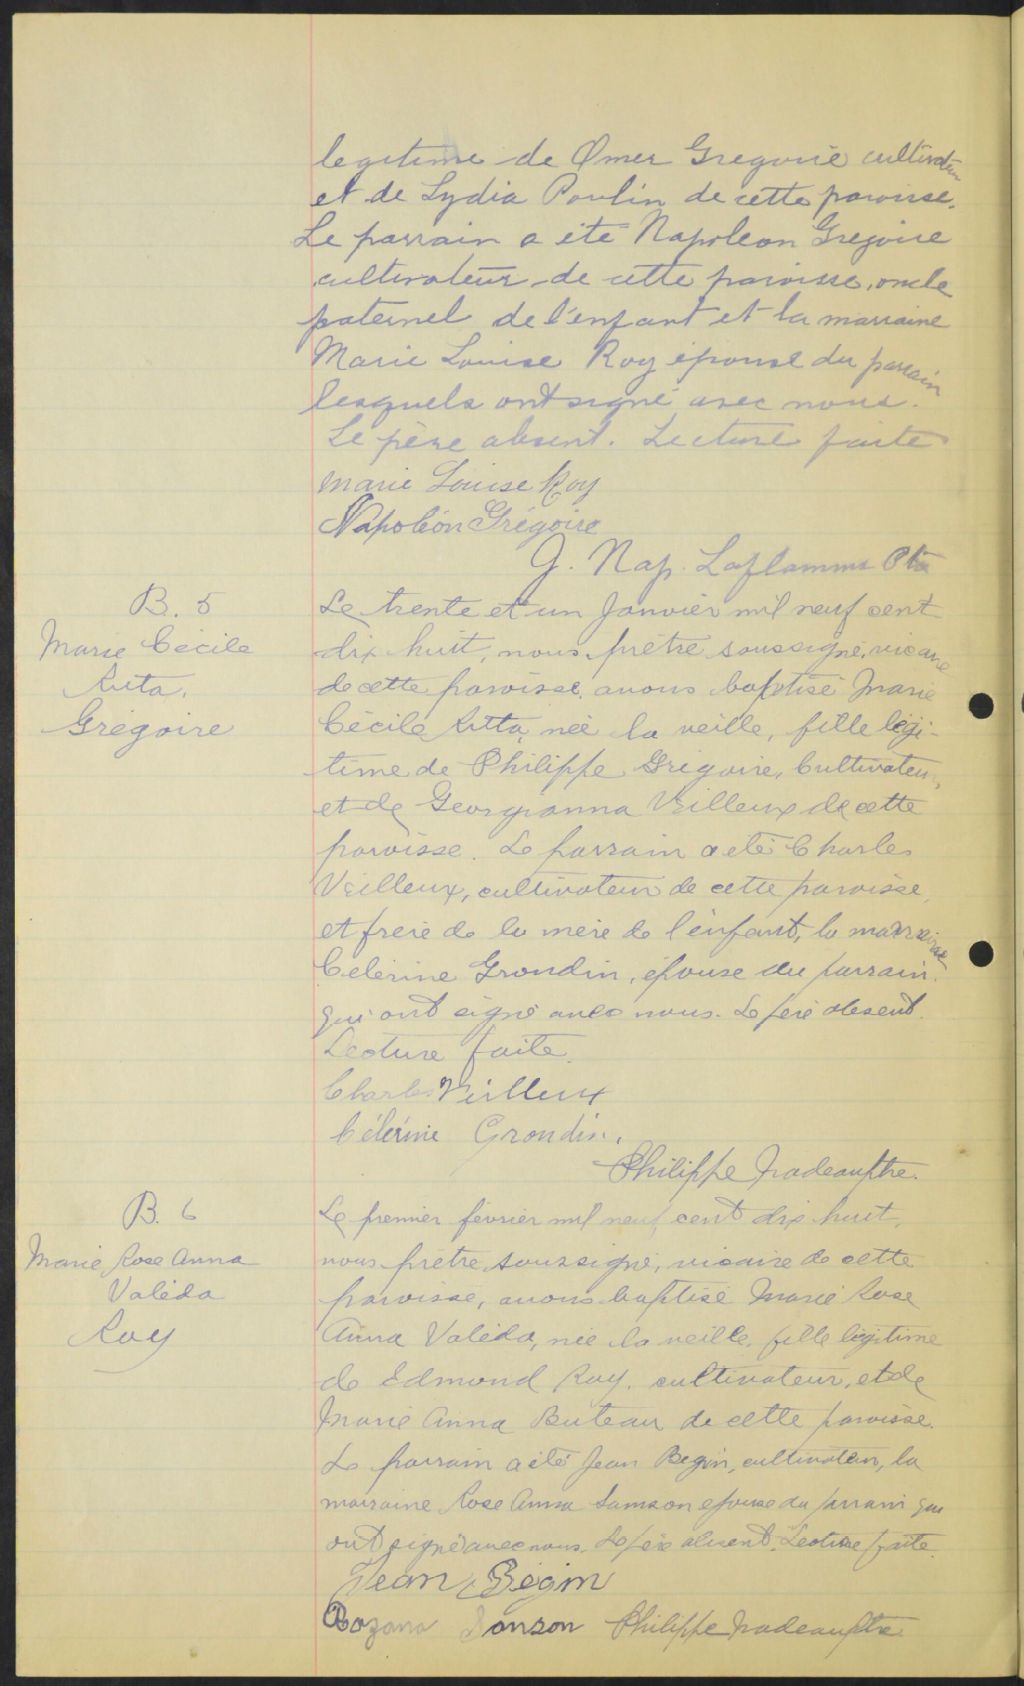 legitime de Omer Gregoire cultivateur
et de Lydia Poulin de cette paroisse.
Le parrain a été Napoleon Gregoire
cultivateur de cette paroisse, oncle
paternel de l'enfant et la marraine
Marie Louise Roy épouse du parrain
lesquels ont signé avec nous.
Le père absent. Lecture faite
Marie Louise Roy
Napoléon Grégoire
J. Nap. Laflamme Ptre
B. 5
Marie Cécile
Rita.
Grégoire
Le trente et un Janvier mil neuf cent
dix huit, nous prêtre soussigné, vicaire
de cette paroisse, avons baptisé Marie
Cécile Ritta, née la veille, fille légi-
time de Philippe Grégoire, Cultivateur,
et de Georgianna Veilleux de cette
paroisse. Le parrain a été Charles
Veilleux, cultivateur de cette paroisse,
et frère de la mère de l'enfant, la marraine
Célérine Grondin, épouse du parrain.
qui ont signé avec nous. Le père absent.
Lecture faite.
Charles Veilleux
Célérine Grondin.
Philippe Nadeau ptre.
B. 6
Marie Rose Anna
Valéda
Roy
Le premier février mil neuf cent dix huit,
nous prêtre, soussigné, vicaire de cette
paroisse, avons baptisé Marie Rose
Anna Valéda, née la veille, fille légitime
de Edmond Roy, cultivateur, et de
Marie Anna Buteau de cette paroisse.
Le parrain a été Jean Begin, cultivateur, la
marraine Rose Anna Samson epouse du parrain qui
ont signé avec nous. Le père absent. Lecture faite.
Jean Bégin
Rozana Sanson Philippe Nadeau ptre